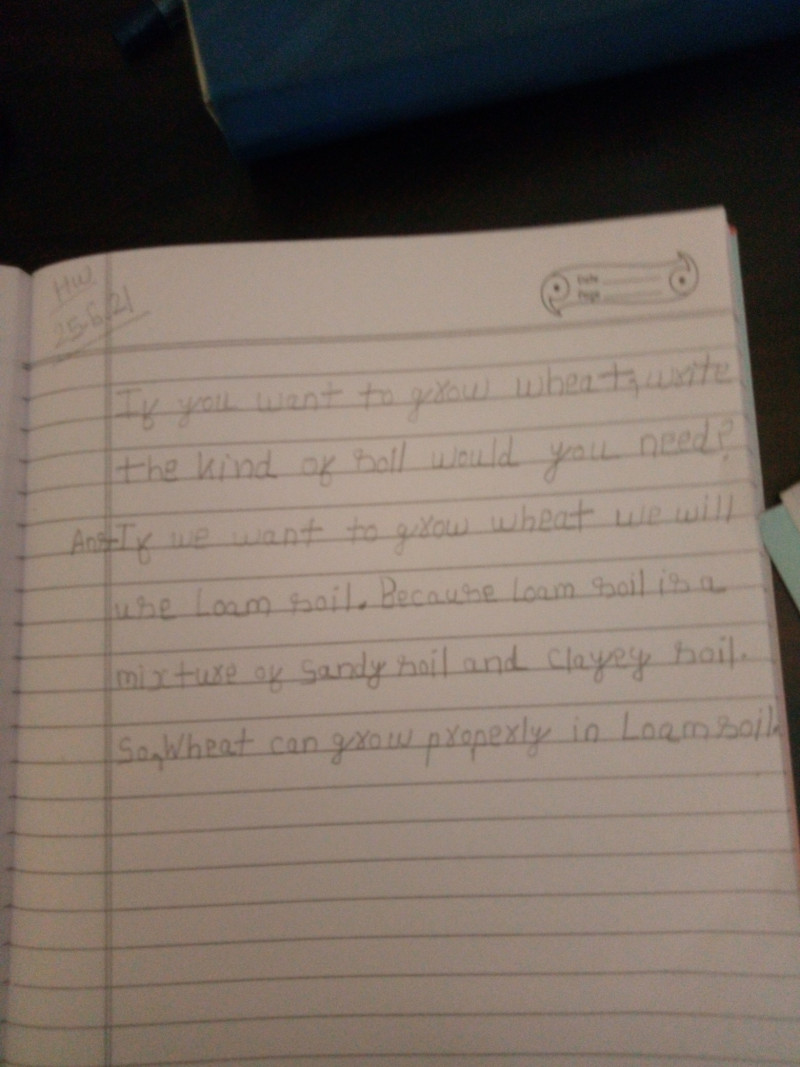 HW
25.6.21
Date
Page
If you want to grow wheat, write
the kind of soil would you need?
Ans-If we want to grow wheat we will
use Loam soil. Because loam soil is a
mixture of sandy soil and clayey soil.
So, Wheat can grow properly in Loam soil.